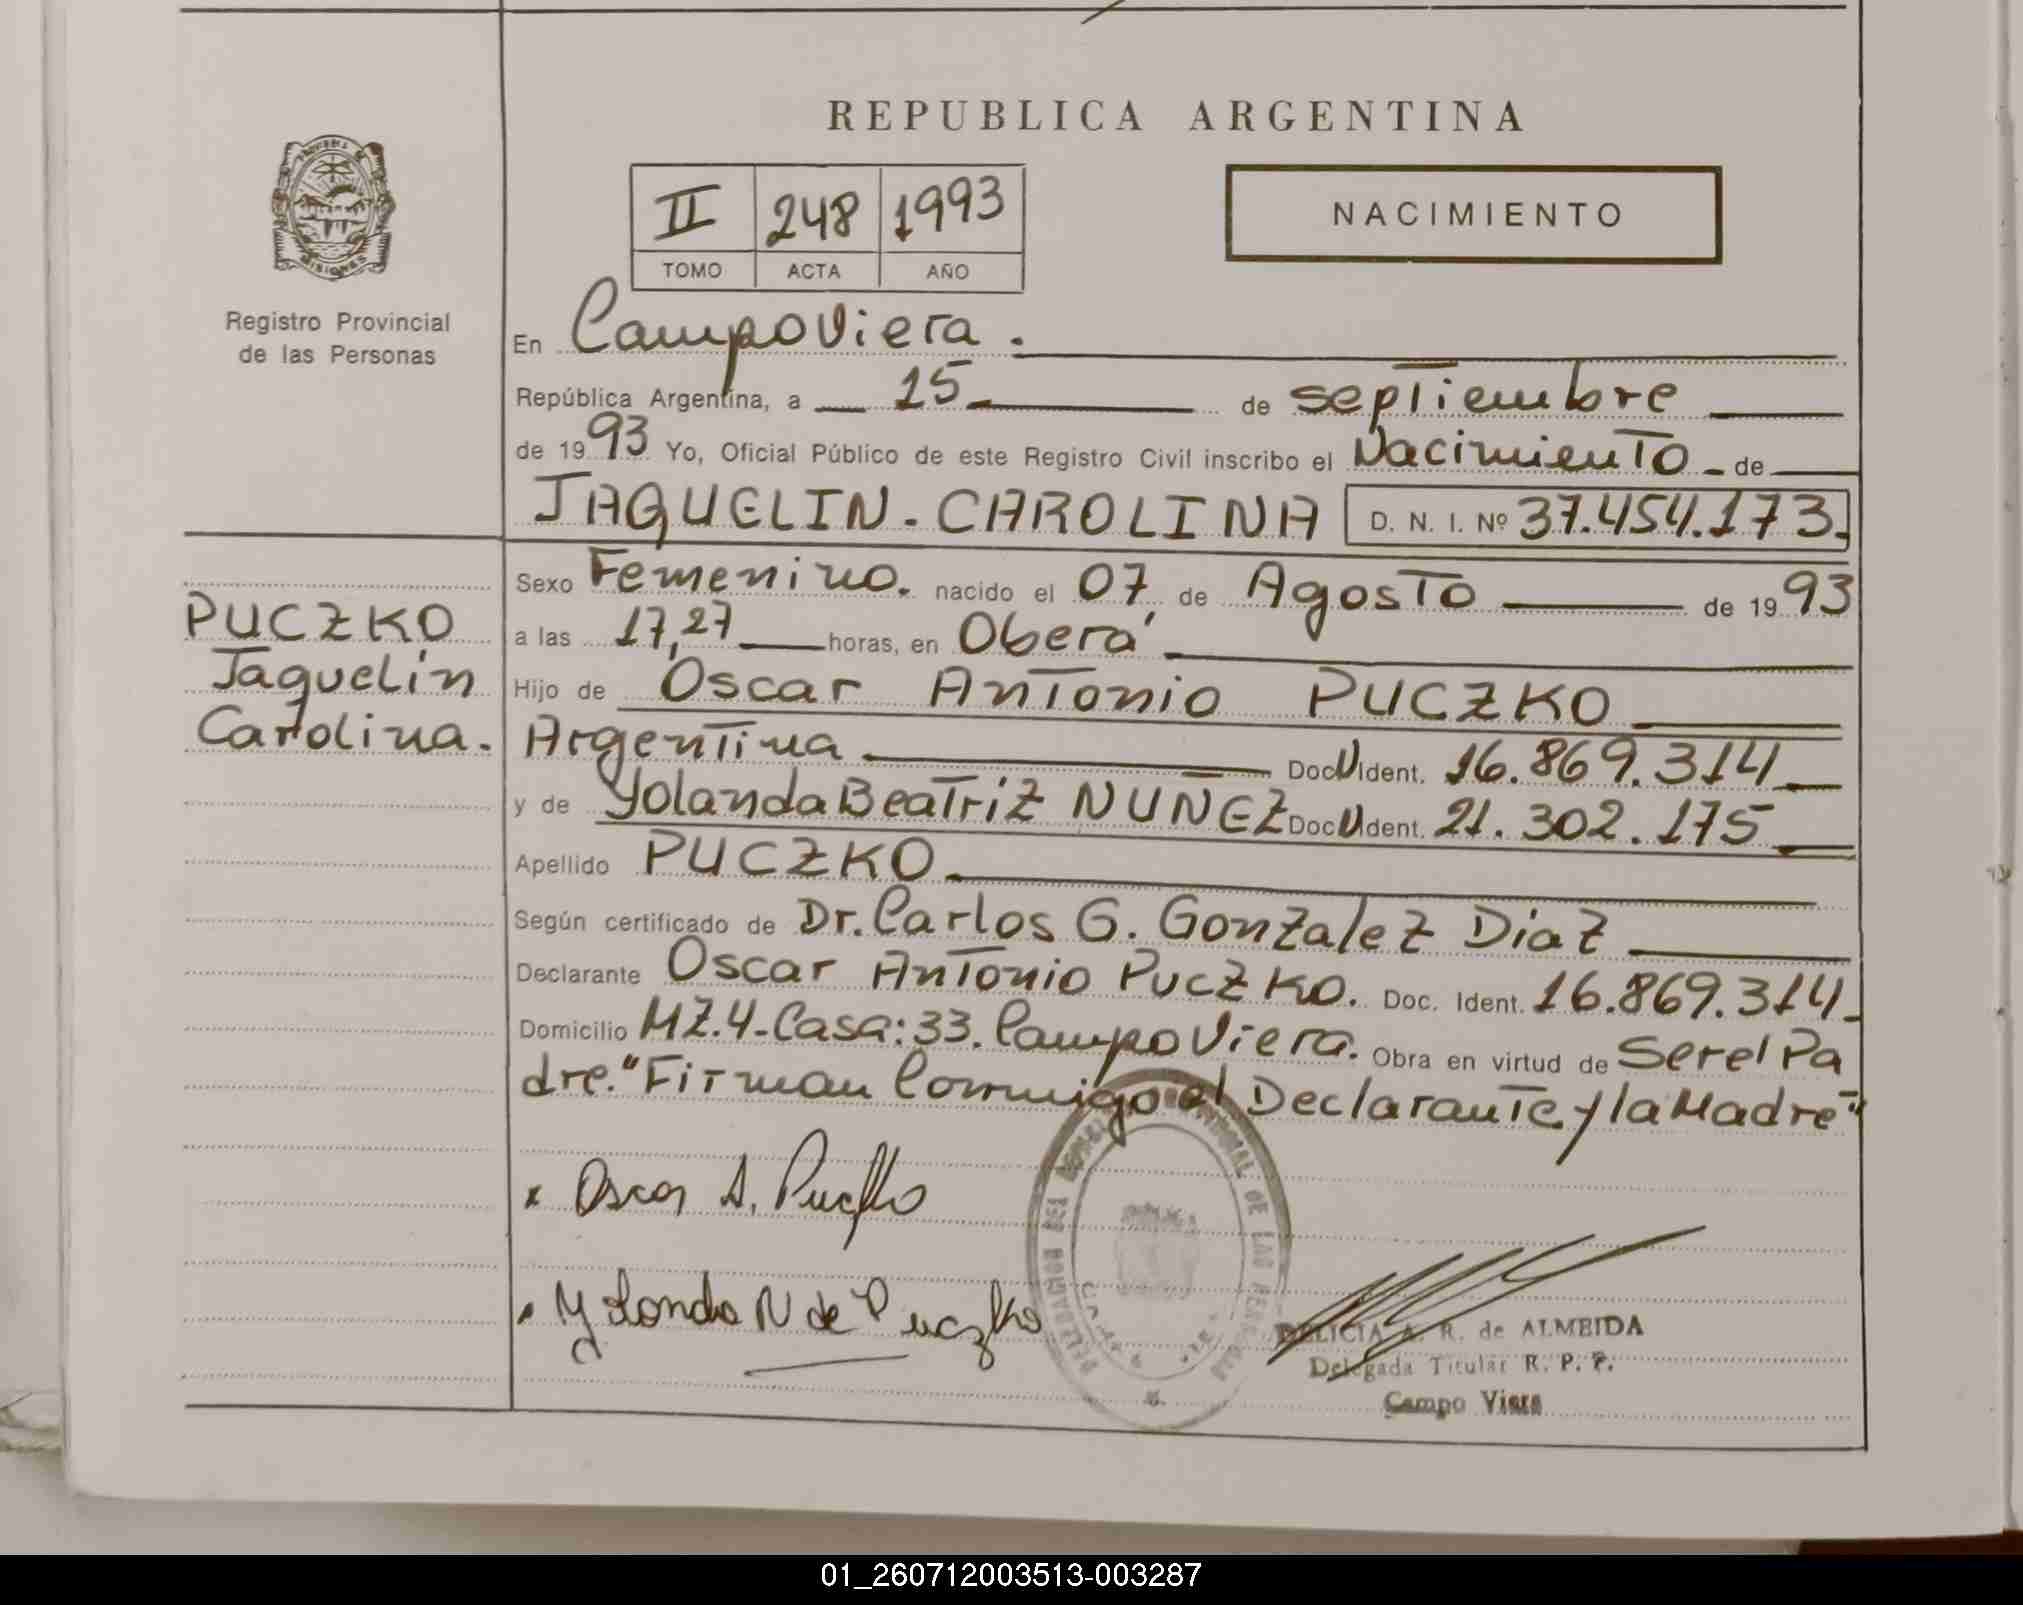 REPUBLICA ARGENTINA
II 248 1993
TOMO ACTA AÑO
NACIMIENTO
MISIONES
Registro Provincial
de las Personas
En Campo Viera.
República Argentina, a 15 de septiembre
de 1993 Yo, Oficial Público de este Registro Civil inscribo el Nacimiento de
JAQUELIN-CAROLINA D. N. I. Nº 37.454.173.
PUCZKO
Jaquelin
Carolina.
Sexo Femenino. nacido el 07 de Agosto de 1993
a las 17,27 horas, en Oberá
Hijo de Oscar Antonio PUCZKO
Argentina DocU Ident. 16.869.314
y de Yolanda Beatriz NUÑEZ DocU Ident. 21.302.175
Apellido PUCZKO
Según certificado de Dr. Carlos G. Gonzalez Diaz
Declarante Oscar Antonio Puczko. Doc. Ident. 16.869.314
Domicilio MZ.4-Casa:33. Campo Viera. Obra en virtud de Ser el Pa
dre. "Firman Conmigo el Declarante y la Madre"
x Oscar A. Puczko
Yolanda N de Puczko
DELICIA A. R. de ALMEIDA
Delegada Titular R. P. P.
Campo Viera
01_260712003513-003287